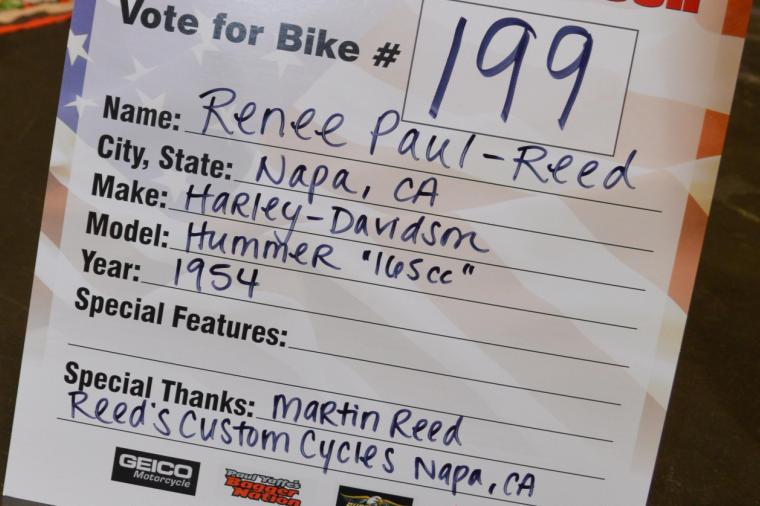 Vote for Bike # 199
Name: Renee Paul-Reed
City, State: Napa, CA
Make: Harley-Davidson
Model: Hummer "165cc"
Year: 1954
Special Features:
Special Thanks: Martin Reed
Reed's Custom Cycles Napa, CA
GEICO
Motorcycle
Paul Yaffe's
Bagger
Nation